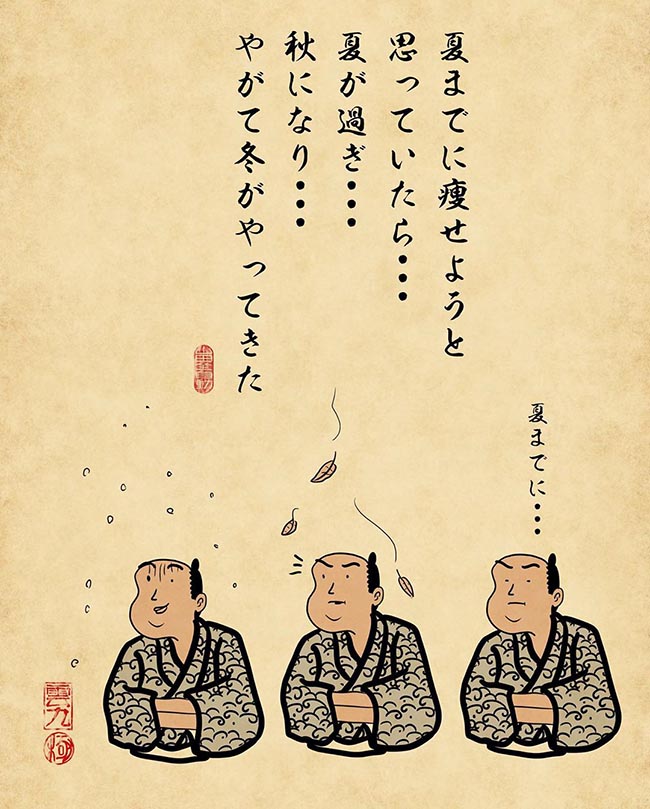 夏までに痩せようと
思っていたら・・・
夏が過ぎ・・・
秋になり・・・
やがて冬がやってきた
夏までに・・・